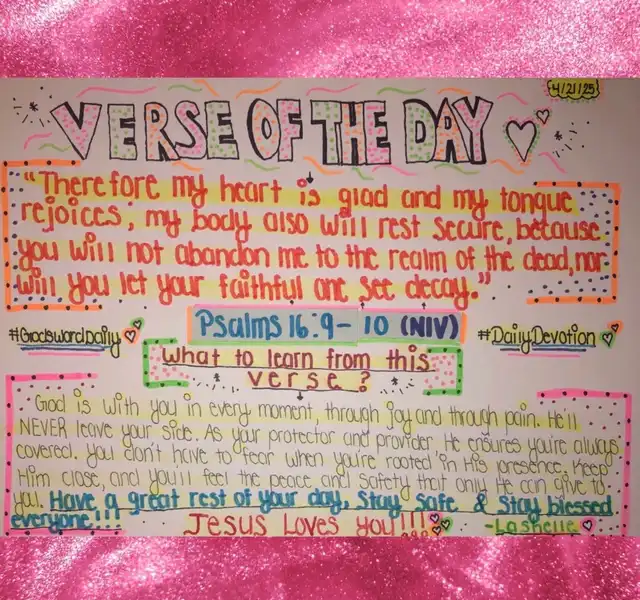 4/21/25
VERSE OF THE DAY
"Therefore my heart is glad and my tongue
rejoices; my body also will rest secure, because
you will not abandon me to the realm of the dead, nor
will you let your faithful one see decay."
Psalms 16:9-10 (NIV)
#GodswordDaily
#DailyDevotion
What to learn from this
verse?
God is with you in every moment, through joy and through pain. He'll
NEVER leave your side. As your protector and provider He ensures you're always
covered. You don't have to fear when you're rooted in His presence. Keep
Him close, and you'll feel the peace and safety that only He can give to
you. Have a great rest of your day, Stay safe & Stay blessed
everyone!!!
Jesus Loves you!!!
-Lashelle